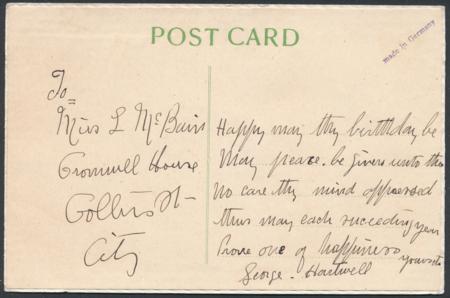 POST CARD
made in Germany
To
Miss L McBain
Cromwell House
Collins St
City
Happy may thy birthday be
May peace be given unto thee
No care thy mind oppressed
thus may each succeeding year
Prove one of happiness
yours etc
George Hartwell